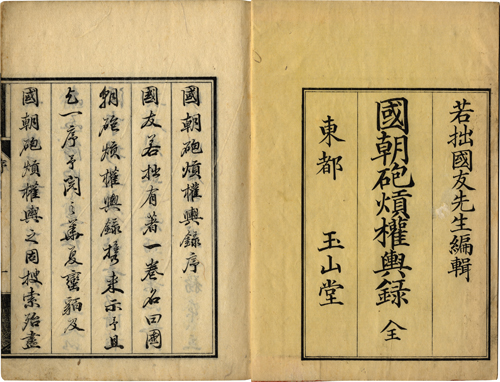 若拙國友先生編輯
國朝砲熕權輿録 全
東都 玉山堂
國朝砲熕權輿錄序
國友若拙有著一卷名曰國
朝砲熕權輿錄携来示予且
乞一序予閲之華夏蠻貊及
國朝砲熕權輿之因搜索殆盡
序